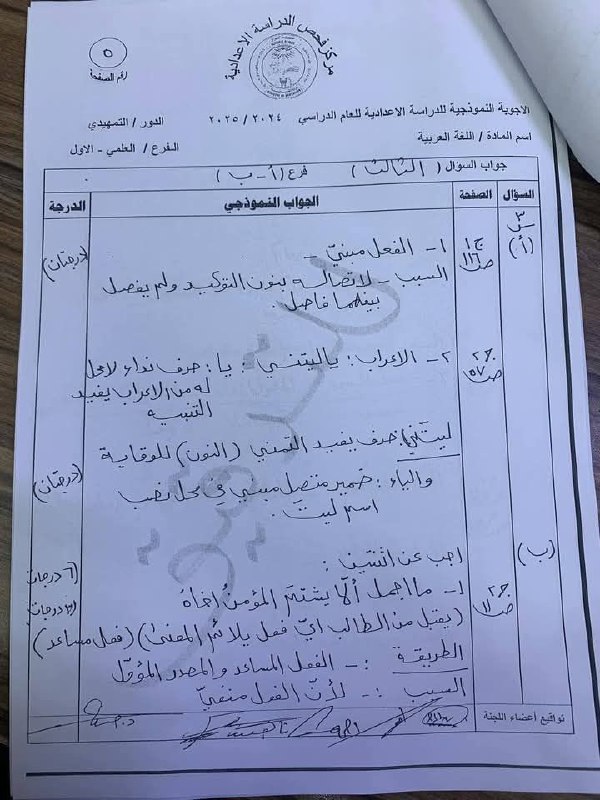 مركز فحص الدراسة الاعدادية
٥
رقم الصفحة
الاجوبة النموذجية للدراسة الاعدادية للعام الدراسي ٢٠٢٤ / ٢٠٢٥
الدور / التمهيدي
اسم المادة / اللغة العربية
الفرع / العلمي - الاول
جواب السؤال ( الثالث ) فرع ( أ - ب )
السؤال الصفحة الجواب النموذجي الدرجة
س٣
(أ)
ج١
ص١١٦
١- الفعل مبنيّ -
(درجتان)
السبب - لاتصاله بنون التوكيد ولم يفصل
بينهما فاصل .
ج٢
ص١٥٧
٢- الاعراب : ياليتني : يا : حرف نداء لامحل
له من الاعراب يفيد
التنبيه
ليتني حرف يفيد التمني (النون) للوقاية
والياء : ضمير متصل مبني في محل نصب
(درجتان)
اسم ليت .
(ب)
اجب عن اثنتين :
(٦ درجات)
ج٢
١- ما اجمل ألّا يشتم المؤمن اخاه
(يقبل من الطالب ايّ فعل يلائم المعنى) (فعل مساعد)
الطريقة :- الفعل المساعد والمصدر المؤوّل
السبب :- لأنّ الفعل منفيّ
تواقيع أعضاء اللجنة